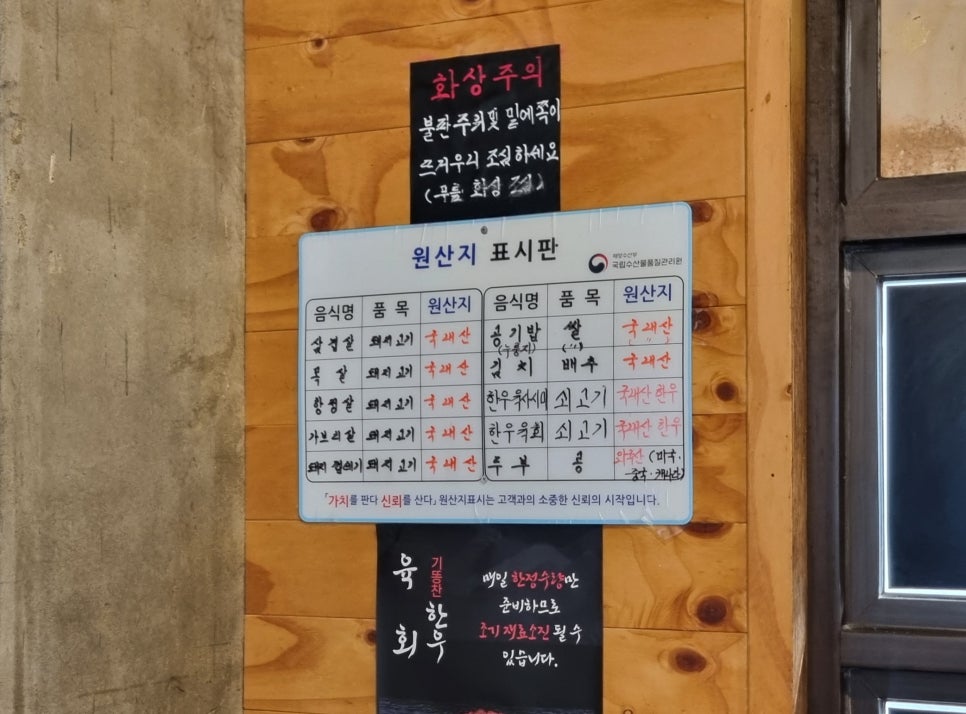 화상주의
불판 주위 및 밑에쪽이
뜨거우니 조심하세요
(무릎 화상 조심)
원산지 표시판
해양수산부
국립수산물품질관리원
음식명 품 목 원산지 음식명 품 목 원산지
삼겹살 돼지고기 국내산 공기밥 (누룽지) 쌀 (〃) 국내산 〃
목 살 돼지고기 국내산 김 치 배추 국내산
항정살 돼지고기 국내산 한우육사시미 쇠고기 국내산 한우
가브리살 돼지고기 국내산 한우육회 쇠고기 국내산 한우
돼지 껍데기 돼지고기 국내산 두 부 콩 외국산 (미국·중국·캐나다)
「가치를 판다 신뢰를 산다」 원산지표시는 고객과의 소중한 신뢰의 시작입니다.
기똥찬
한우
육회
매일 한정수량만
준비하므로
조기 재료소진 될 수
있습니다.